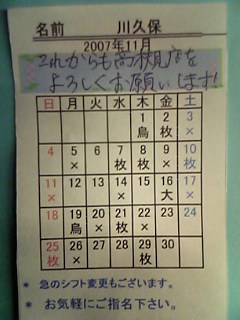 名前 川久保
2007年11月
これからも高槻店を
よろしくお願いします!
日 月 火 水 木 金 土
1 2 3
烏 枚 ×
4 5 6 7 8 9 10
× 枚 枚 × 枚
11 12 13 14 15 16 17
× × 大 ×
18 19 20 21 22 23 24
烏 × 枚 枚
25 26 27 28 29 30
枚 × 枚
* 急のシフト変更もございます。
* お気軽にご指名下さい。